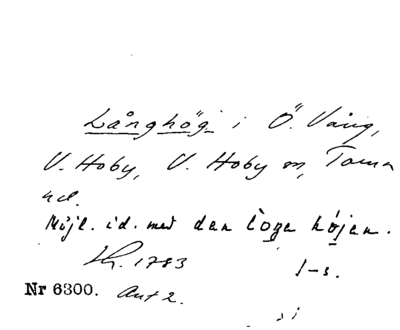 Långhög i Ö. Vång,
V. Hoby, V. Hoby sn, Torna
hd.
Möjl. id. med den långa höjen.
Sk. 1783 1-s.
Nr 6300. Ant 2.